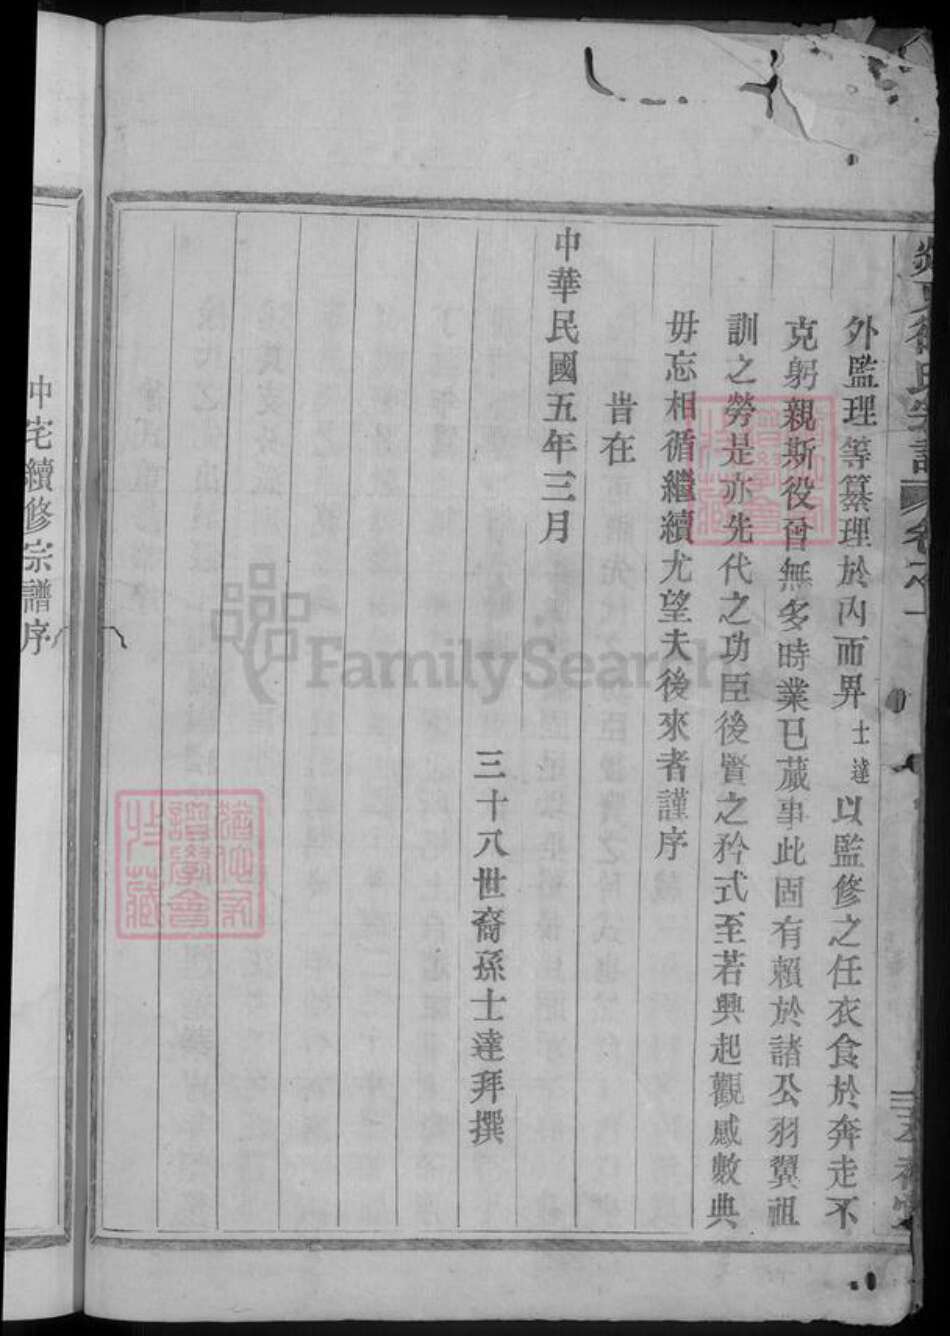 外監理等纂理於內而畀士達以監修之任衣食於奔走不
克躬親斯役曾無多時業已蕆事此固有賴於諸公羽翼祖
訓之勞是亦先代之功臣後賢之矜式至若興起觀感數典
毋忘相循繼續尤望夫後來者謹序
旹在
中華民國五年三月
三十八世裔孫士達拜撰
中宅續修宗譜序
FamilySearch